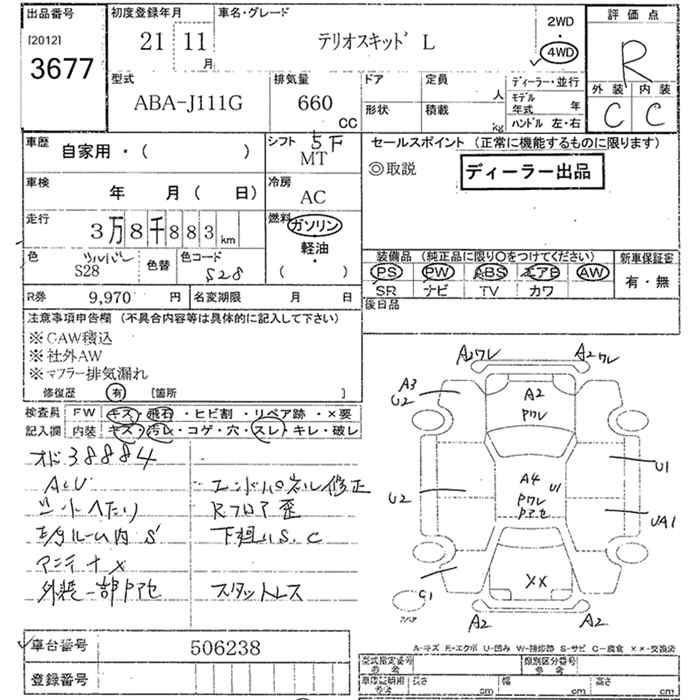 出品番号 初度登録年月 車名・グレード 評価点
[2012]
3677
21 11 月
テリオスキッド L
2WD
4WD
R
外装 内装
C C
型式 排気量 ドア 定員 人 ディーラー・並行
ABA-J111G 660 CC
形状 積載 kg モデル年式 年
ハンドル 左・右
車歴 自家用・( )
シフト 5F
MT
セールスポイント (正常に機能するものに限ります)
◎取説
ディーラー出品
車検 年 月 ( 日)
冷房 AC
走行 3万8千883 km
燃料 ガソリン・軽油・( )
色 シルバー S28 色替 色コード S28
装備品 (純正品に限り○をつけてください) 新車保証書
PS PW ABS エアB AW 有・無
SR ナビ TV カワ
R券 9,970 円 名変期限 月 日
後日品
注意事項申告欄 (不具合内容等は具体的に記入して下さい)
※CAW積込
※社外AW
※マフラー排気漏れ
修復歴 有 [箇所 ]
検査員記入欄
FW キズ・飛石・ヒビ割・リペア跡・×要
内装 キズ・汚レ・コゲ・穴・スレ・キレ・破レ
オド38884
シートへたり
アンテナ×
外装一部Pアセ
エンドパネル修正
Rフロア歪
下廻りS.C
スタットレス
A2ワレ A2ワレ
A3
U2
A2
Pワレ
U1
A4 U1
Pワレ
Pアセ
U2
UA1
C1
XX
A2 A2
A-キズ E-エクボ U-凹み W-補修跡 S-サビ C-腐食 ××-交換済
車台番号 506238
登録番号
型式指定番号 参考 類別区分番号 参考
車庫証明用 参考 長さ cm 幅 cm 高さ cm